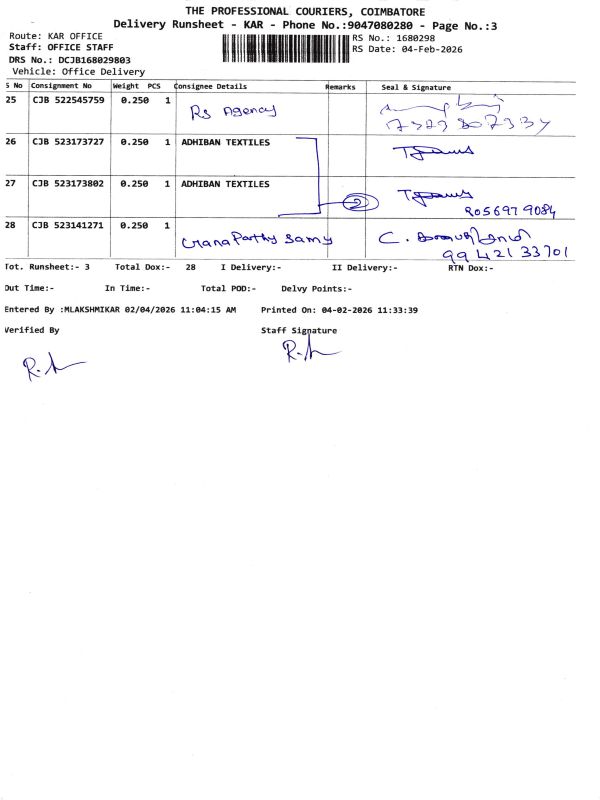 THE PROFESSIONAL COURIERS, COIMBATORE
Delivery Runsheet - KAR - Phone No.:9047080280 - Page No.:3
Route: KAR OFFICE
RS No.: 1680298
Staff: OFFICE STAFF
RS Date: 04-Feb-2026
DRS No.: DCJB168029803
Vehicle: Office Delivery
S No Consignment No Weight PCS Consignee Details Remarks Seal & Signature
25 CJB 522545759 0.250 1 Rs Agency
26 CJB 523173727 0.250 1 ADHIBAN TEXTILES
27 CJB 523173802 0.250 1 ADHIBAN TEXTILES 2
8056979084
28 CJB 523141271 0.250 1 GnanaParthy Samy C.
99421 33701
Tot. Runsheet:- 3 Total Dox:- 28 I Delivery:- II Delivery:- RTN Dox:-
Out Time:- In Time:- Total POD:- Delvy Points:-
Entered By :MLAKSHMIKAR 02/04/2026 11:04:15 AM Printed On: 04-02-2026 11:33:39
Verified By Staff Signature